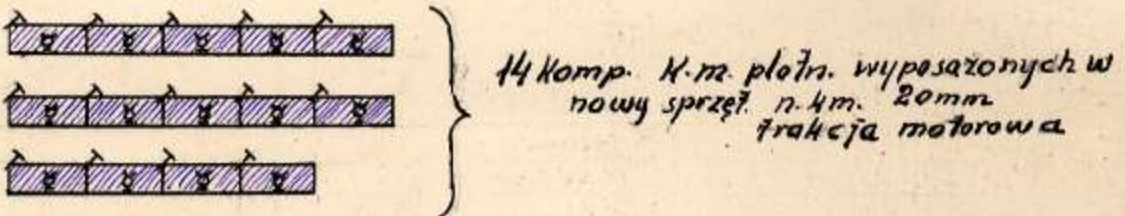 14 komp. K.m. plotn. wyposażonych w
nowy sprzęt. n.km. 20mm
trakcja motorowa